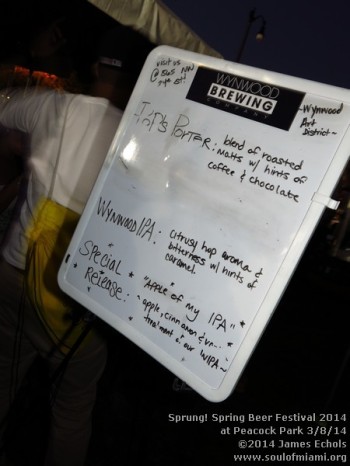 visit us
@ 565 NW
24th St
WYNWOOD
BREWING
COMPANY
~Wynwood
Art
District~
Pop's Porter: blend of roasted
malts w/ hints of
coffee & chocolate
Wynwood IPA: citrusy hop aroma &
bitterness w/ hints of
caramel
Special
Release:
* "Apple of my IPA" *
~apple, cinnamon &
treatment of our WIPA~
Sprung! Spring Beer Festival 2014
at Peacock Park 3/8/14
©2014 James Echols
www.soulofmiami.org